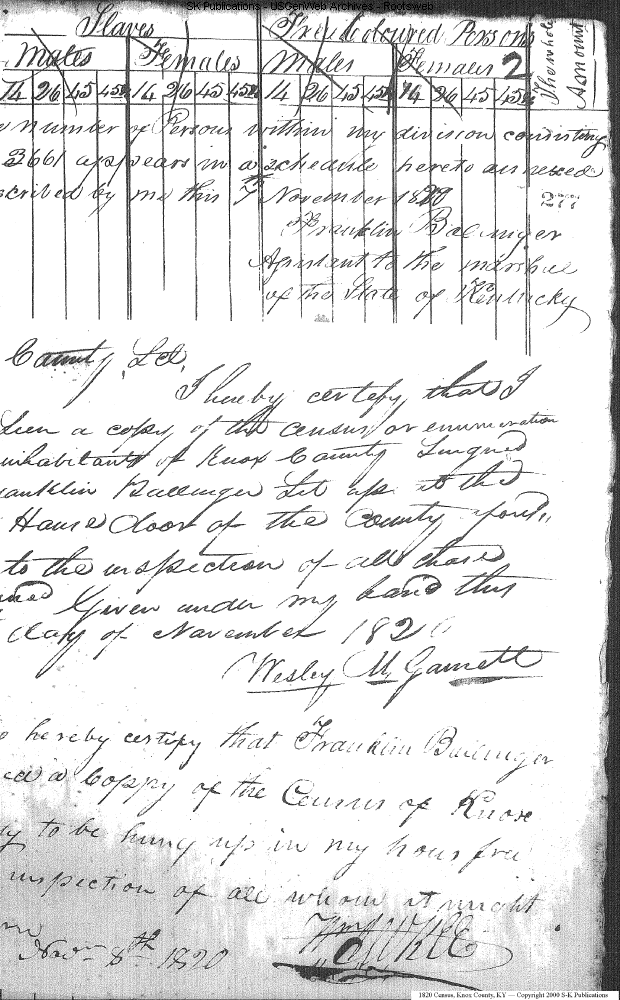 SK Publications - USGenWeb Archives - Rootsweb
Slaves Free Coloured Persons The whole Amount
Males Females Males Females 2
14 26 45 45 14 26 45 45 14 26 45 45 14 26 45 45
number of Persons within my division consisting
3661 appears in a schedule hereto annexed
scribed by me this 7th November 1820
277
Franklin Ballinger
Assistant to the marshal
of the State of Kentucky
County Sct.
I hereby certify that I
seen a copy of the census or enumeration
inhabitants of Knox County Singned
ranklin Ballinger Set up at the
House door of the County
to the inspection of all those
Given under my hand this
day of November 182
Wesley M Garnett
hereby certify that Franklin Ballinger
a Coppy of the Census of Knox
to be hung up in my hous free
inspection of all whom it might
Novm 8th 1820
1820 Census, Knox County, KY — Copyright 2000 S-K Publications